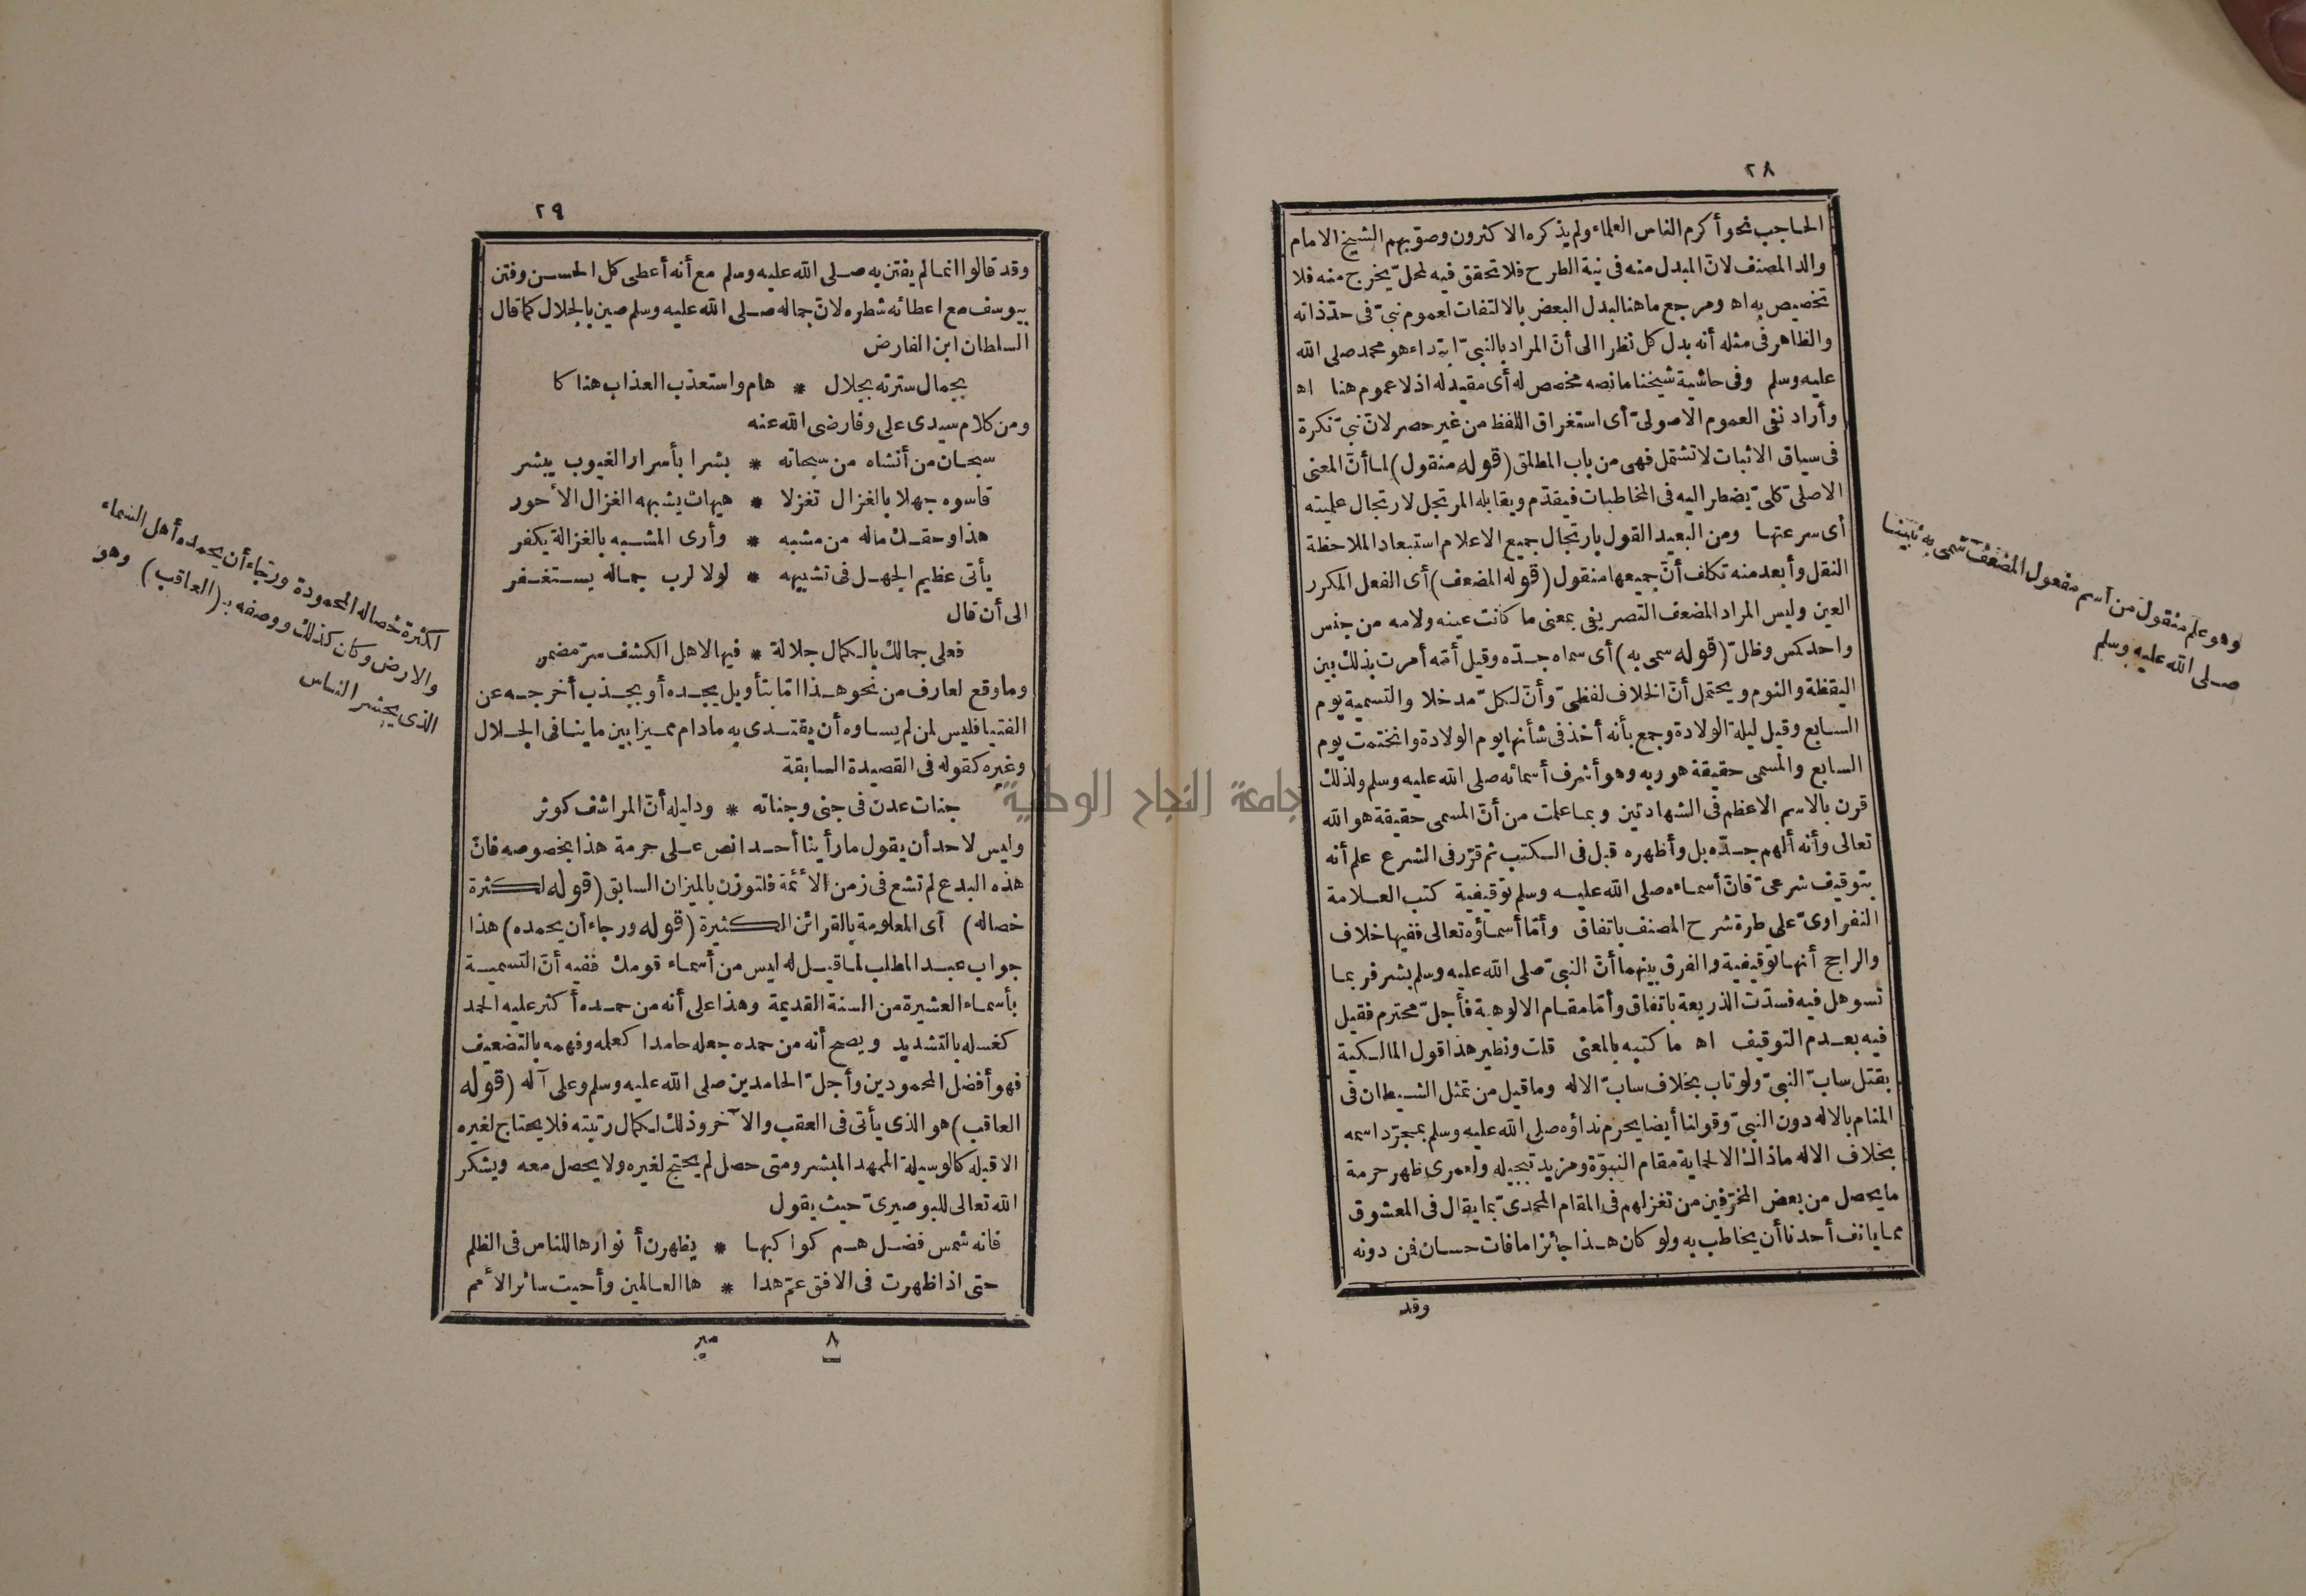 ٢٨
الحاجب نحو أكرم الناس العلماء ولم يذكره الاكثرون وصوّبهم الشيخ الامام
والد المصنف لانّ المبدل منه فى نية الطرح فلا تحقق فيه لمحلّ يخرج منه فلا
تخصيص به اه ومرجع ما هنا لبدل البعض بالالتفات لعموم نبىّ فى حدّ ذاته
والظاهر فى مثله أنه بدل كل نظرا الى أنّ المراد بالنبىّ ابتداء هو محمد صلى الله
عليه وسلم وفى حاشية شيخنا مانصه مخصص له أى مقيد له اذ لا عموم هنا اه
وأراد نفى العموم الاصولىّ أى استغراق اللفظ من غير حصر لانّ نبىّ نكرة
فى سياق الاثبات لا تشتمل فهى من باب المطلق (قوله منقول) لما أنّ المعنى
الاصلىّ كلىّ يضطر اليه فى المخاطبات فيقدّم ويقابله المرتجل لارتجال علميته
أى سرعتها ومن البعيد القول بارتجال جميع الاعلام استبعاد الملاحظة
النقل وأبعد منه تكلف أنّ جميعها منقول (قوله المضعف) أى الفعل المكرر
العين وليس المراد المضعف التصريفى بمعنى ما كانت عينه ولامه من جنس
واحد كمس وظلّ (قوله سمى به) أى سماه جدّه وقيل أمّه أمرت بذلك بين
اليقظة والنوم ويحتمل أنّ الخلاف لفظىّ وأنّ لكلّ مدخلا والتسمية يوم
السابع وقيل ليلة الولادة وجمع بأنه أخذ فى شأنها يوم الولادة وانختمت يوم
السابع والمسمى حقيقة هو ربه وهو أشرف أسمائه صلى الله عليه وسلم ولذلك
قرن بالاسم الاعظم فى الشهادتين وبما علمت من أنّ المسمى حقيقة هو الله
تعالى وأنه ألهم جدّه بل وأظهره قبل فى الكتب ثم قرّر فى الشرع علم أنه
بتوقيف شرعىّ فانّ أسماءه صلى الله عليه وسلم توقيفية كتب العلامة
النفراوىّ على طرة شرح المصنف باتفاق وأمّا أسماؤه تعالى ففيها خلاف
والراجح أنها توقيفية والفرق بينهما أنّ النبىّ صلى الله عليه وسلم بشر فربما
تسوهل فيه فسدّت الذريعة باتفاق وأمّا مقام الالوهية فأجلّ محترم فقيل
فيه بعدم التوقيف اه ما كتبه بالمعنى قلت ونظير هذا قول المالكية
بقتل سابّ النبىّ ولو تاب بخلاف سابّ الاله وما قيل من تمثل الشيطان فى
المنام بالاله دون النبىّ وقولنا أيضا يحرم نداؤه صلى الله عليه وسلم بمجرّد اسمه
بخلاف الاله ماذاك الا لحماية مقام النبوّة ومزيد تبجيله ولعمرى ظهر حرمة
ما يحصل من بعض المخرّفين من تغزلهم فى المقام المحمدىّ بما يقال فى المعشوق
مما يانف أحدنا أن يخاطب به ولو كان هذا جائزا ما فات حسان فمن دونه
وقد
وهو علم منقول من اسم مفعول المضعف سمى به نبينا
صلى الله عليه وسلم
٢٩
وقد قالوا انما لم يفتن به صلى الله عليه وسلم مع أنه أعطى كل الحسن وفتن
بيوسف مع اعطائه شطره لانّ جماله صلى الله عليه وسلم صين بالجلال كما قال
السلطان ابن الفارض
بجمال سترته بجلال * هام واستعذب العذاب هناكا
ومن كلام سيدى على وفا رضى الله عنه
سبحان من أنشاه من سبحاته * بشرا بأسرار الغيوب يبشر
قاسوه جهلا بالغزال تغزلا * هيهات يشبهه الغزال الأحور
هذا وحقك ماله من مشبه * وأرى المشبه بالغزالة يكفر
يأتى عظيم الجهل فى تشبيهه * لولا لرب جماله يستغفر
الى أن قال
فعلى جمالك بالكمال جلالة * فيها لاهل الكشف سرّ مضمر
وما وقع لعارف من نحو هذا امّا بتأويل يجده أو بجذب أخرجه عن
الفتيا فليس لمن لم يساوه أن يقتدى به مادام مميزا بين ما ينافى الجلال
وغيره كقوله فى القصيدة السابقة
جنات عدن فى جنى وجناته * ودليله أنّ المراشف كوثر
وليس لاحد أن يقول ما رأينا أحدا نص على حرمة هذا بخصوصه فانّ
هذه البدع لم تشع فى زمن الأئمة فلتوزن بالميزان السابق (قوله لكثرة
خصاله) أى المعلومة بالقرائن الكثيرة (قوله ورجاء أن يحمده) هذا
جواب عبد المطلب لما قيل له ليس من أسماء قومك ففيه أنّ التسمية
بأسماء العشيرة من السنة القديمة وهذا على أنه من حمده أكثر عليه الحمد
كغسله بالتشديد ويصح أنه من حمده جعله حامدا كعلمه وفهمه بالتضعيف
فهو أفضل المحمودين وأجلّ الحامدين صلى الله عليه وسلم وعلى آله (قوله
العاقب) هو الذى يأتى فى العقب والآخر وذلك لكمال رتبته فلا يحتاج لغيره
الا قبله كالوسيلة الممهد المبشر ومتى حصل لم يحتج لغيره ولا يحصل معه ويشكر
الله تعالى للبوصيرىّ حيث يقول
فانه شمس فضل هم كواكبها * يظهرن أنوارها للناس فى الظلم
حتى اذا ظهرت فى الافق عمّ هدا * ها العالمين وأحيت سائر الأمم
٨ مير
لكثرة خصاله المحمودة ورجاء أن يحمده أهل السماء
والارض وكان كذلك ووصفه بـ(العاقب) وهو
الذى يحشر الناس
جامعة النجاح الوطنية